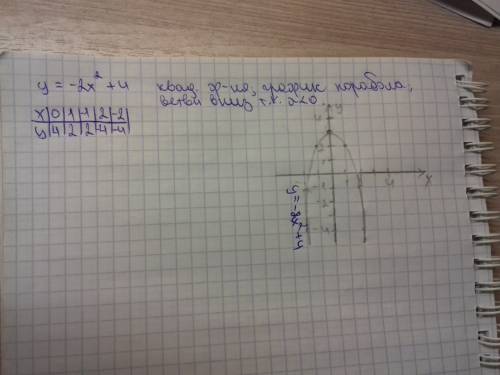 y = -2x² + 4 квад. ф-ия, график парабола,
ветви вниз т.к. a<0.
x 0 1 -1 2 -2
y 4 2 2 -4 -4
y
4
x
4
-2
-4
y = -2x² + 4